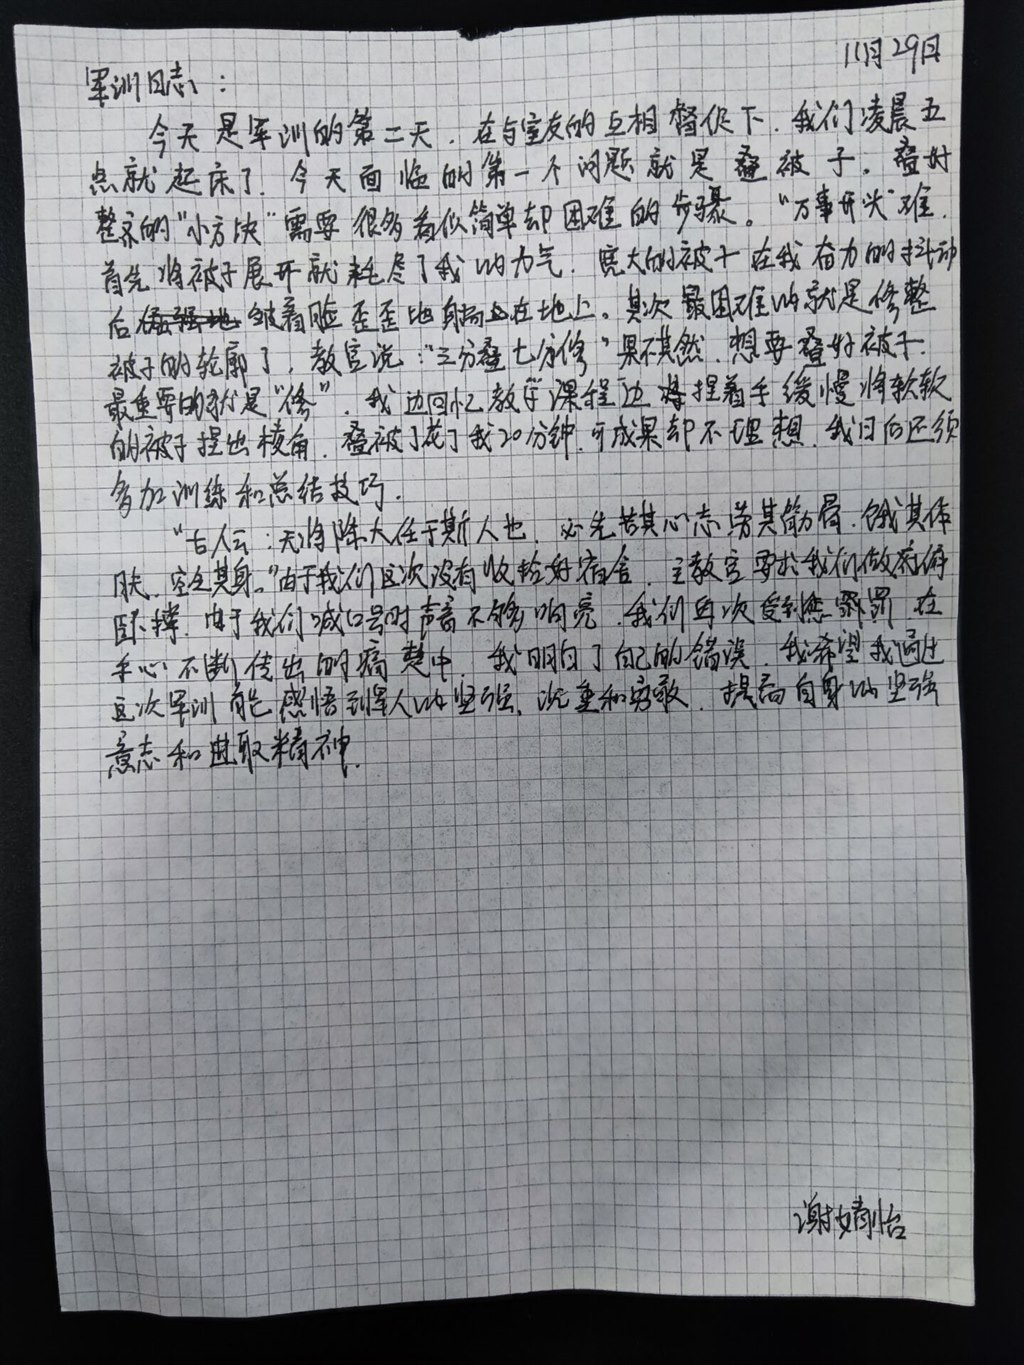 11月29日
军训日志：
今天是军训的第二天，在与室友的互相督促下，我们凌晨五
点就起床了。今天面临的第一个问题就是叠被子。叠好
整齐的“小方块”需要很多看似简单却困难的步骤。“万事开头难”，
首先将被子展开就耗尽了我的力气，宽大的被子在我奋力的抖动
后皱着脸歪歪地躺在地上。其次最困难的就是修整
被子的轮廓了，教官说：“三分叠七分修”果不其然，想要叠好被子，
最重要的就是“修”，我边回忆教学课程边捏着手缓慢将软软
的被子捏出棱角，叠被子花了我20分钟，可成果却不理想，我日后还须
多加训练和总结技巧。
“古人云：天将降大任于斯人也，必先苦其心志，劳其筋骨，饿其体
肤，空乏其身。”由于我们这次没有收拾好宿舍，主教官要求我们做俯
卧撑，由于我们喊口号时声音不够响亮，我们再次受到惩罚，在
手心不断传出的痛楚中，我明白了自己的错误，我希望我通过
这次军训能感悟到军人的坚强、沉重和勇敢，提高自身的坚强
意志和进取精神。
谢婧怡